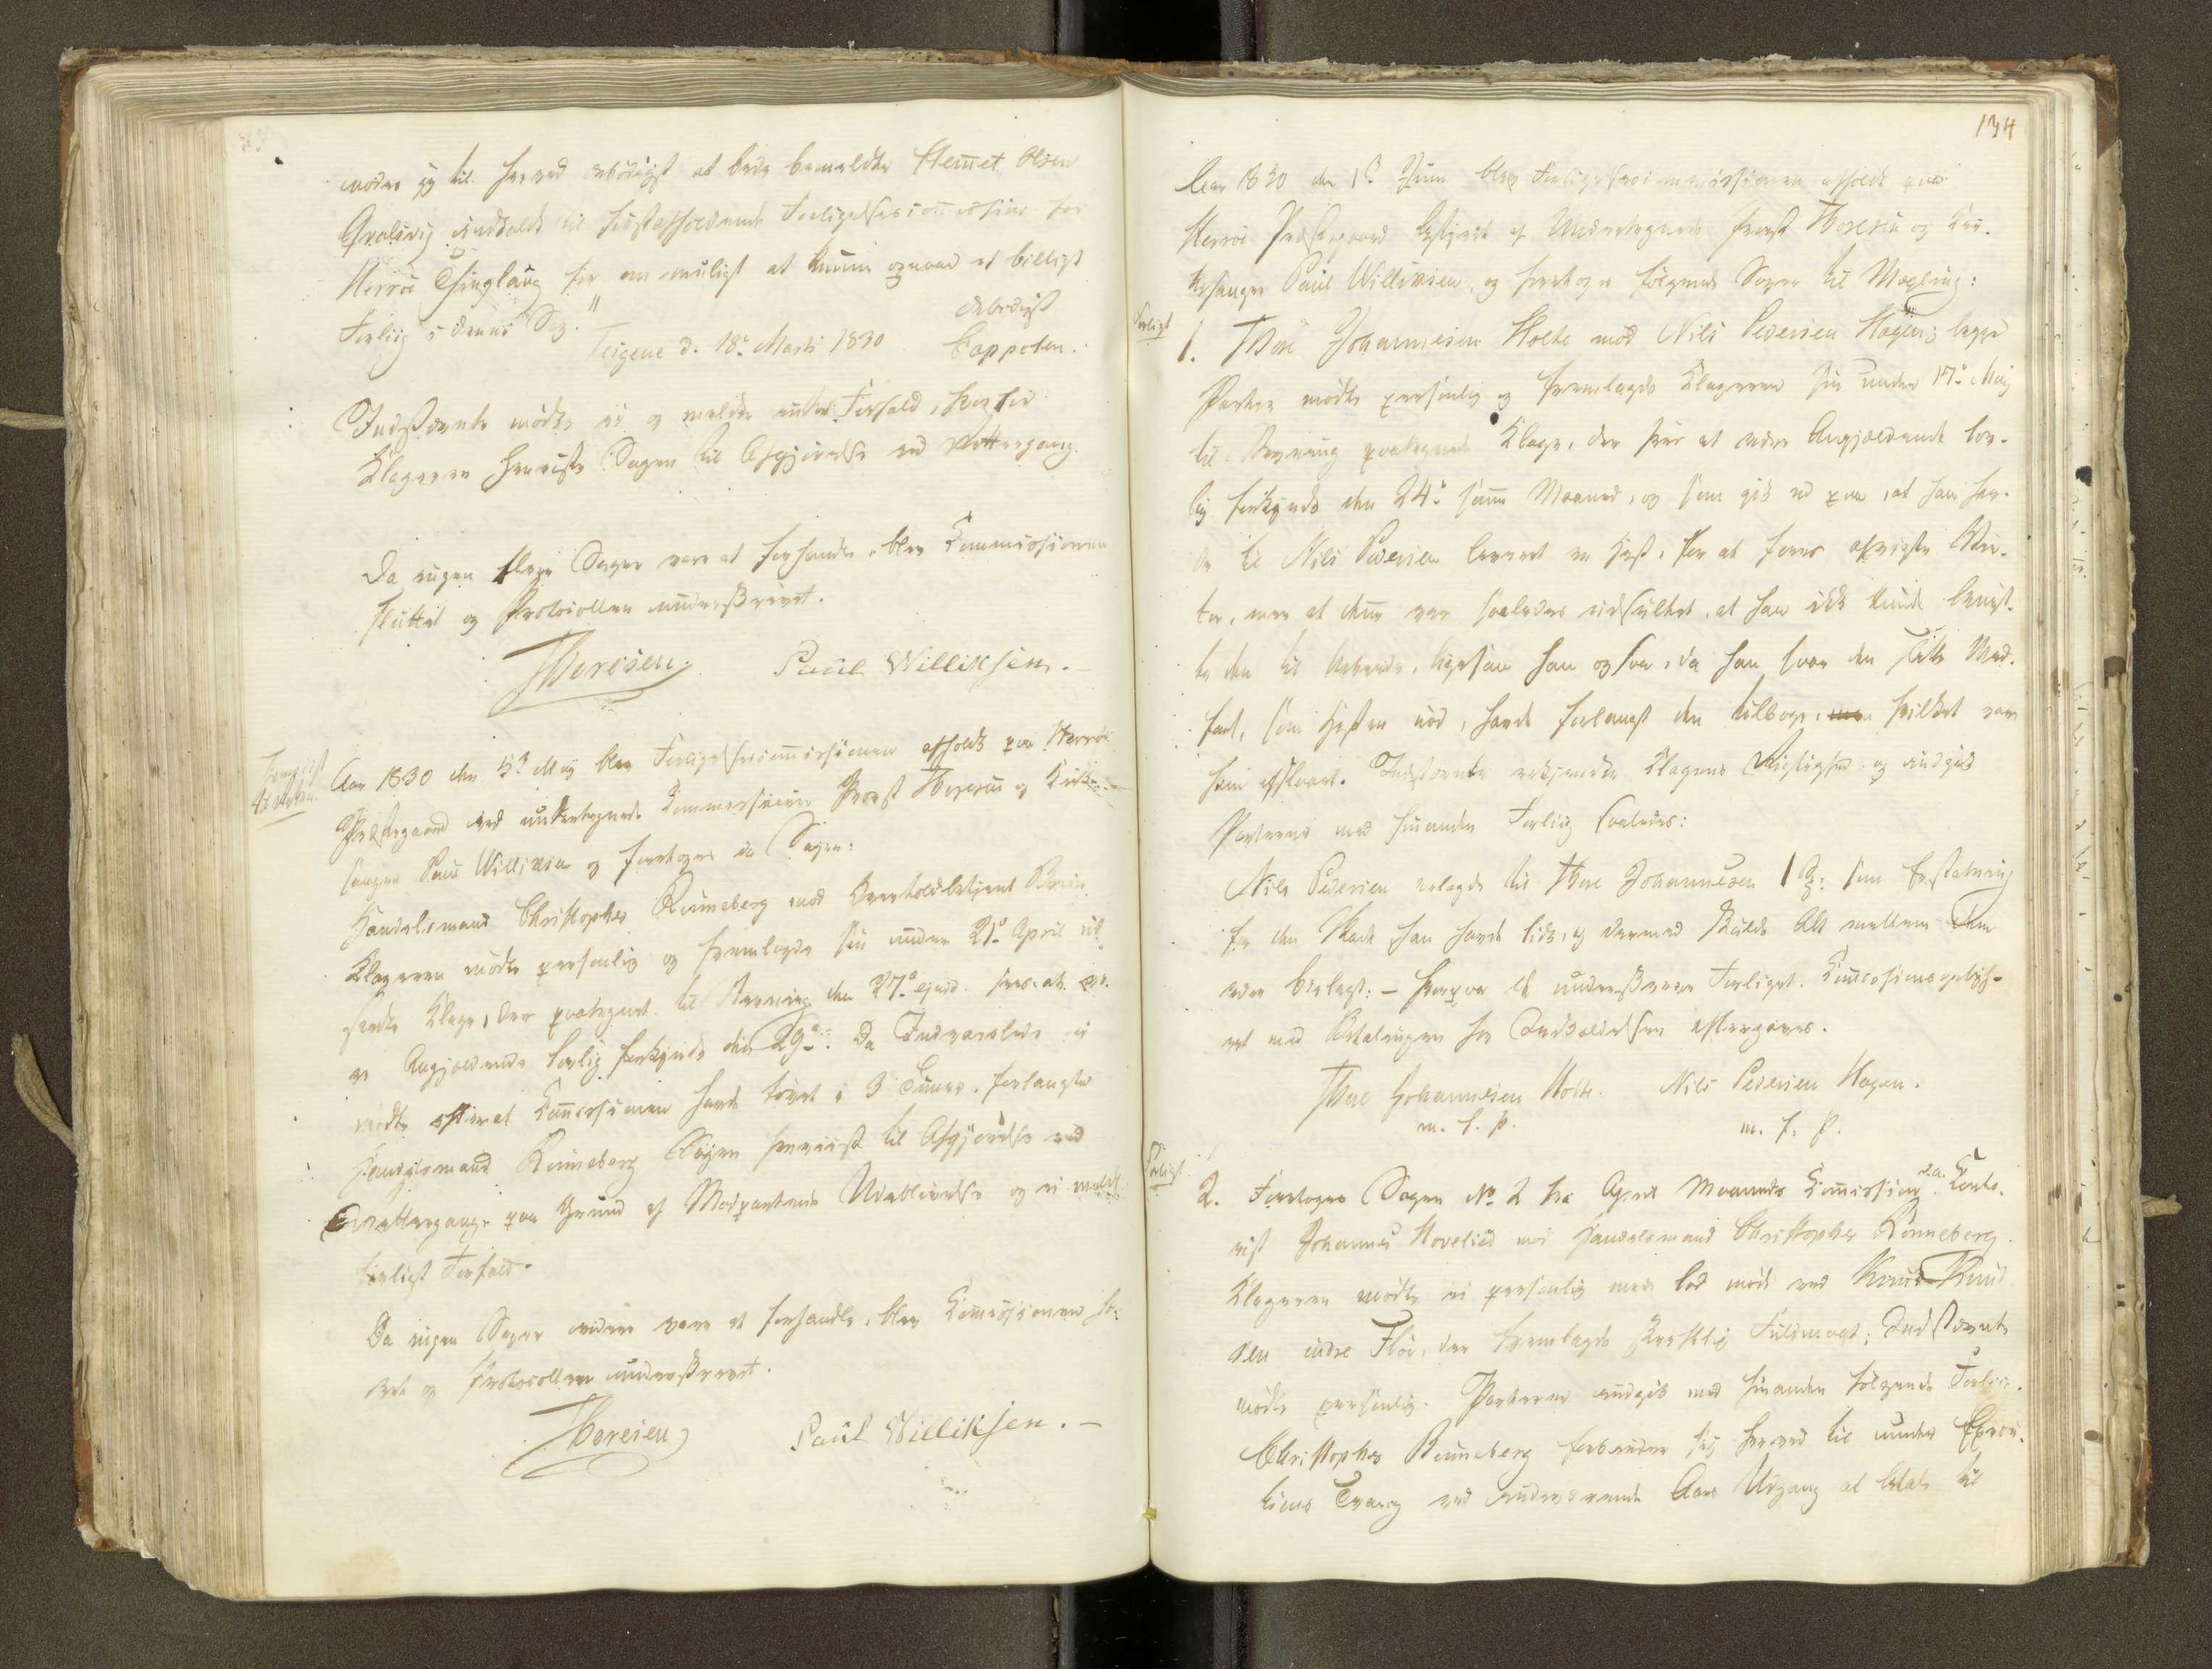 møder jeg til herved ærbødigst at bede bemeldte Klemet Olsen
indkaldt til førstafholdende Forligelsescommission for
Herrøe Thinglaug for om muligt at kunne opnaae et billigt
Forliig i denne Sag."
ærbødigst
Teigene d. 18de Marti 1830 Cappelen.
Indstevnte mødte ei og meldte intet Forfald, hvorfor
Klageren henviste Sagen til Afgjørelse ved Rettergang.
Da ingen flere Sager vare at forhandle, blev Commissionen
sluttet og Protocollen underskrevet.
Thoresen. Paul Williksen.
Henviist
til Retten.
Aar 1830 den 5te Maj blev Forligelsescommissionen afholdt paa Herrøe
Præstegaard ved undertegnede Commissairer Provst Thoresen og Kirke-
sanger Paul Williksen og foretoges da Sagen:
Handelsmand Christopher Rønneberg mod Overtoldbetjent
Klageren mødte personlig og fremlagde sin under 21de April ud-
færdte Klage, der paategnet til Stevning den 27de ejusd. sees at væ-
re Angjældende lovlig forkyndt den 29de. Da Indvarslede ei
mødte efterat Commissionen havde tøvet i 3 Timer, forlangte
Handelsmand Rønneberg Sagen henviist til Afgjørelse ved
Rettergang paa Grund af Modpartens Udeblivelse og ei meldt
lovligt Forfald.
Da ingen Sager videre vare at forhandle, blev Commissionen hæ-
vet og Protocollen underskrevet.
Thoresen Paul Williksen. -
134
Aar 1830 den 1ste Juni blev Forligelsescommissionen afholdt paa
Herrøe Præstegaard bestyret af Undertegnede Provst Thoresen og Kir-
kesanger Paul Williksen, og foretoges følgende Sager til Mægling:
Forligt
1. Thore Johannesen Holte mod Nils Pedersen Hagen; begge
Parter mødte personlig og fremlagde Klageren sin under 17de Maj
til Stevning paategnede Klage, der sees at være Angjældende lov-
lig forkyndt den 24de samme Maaned, og som gik ud paa, at han hav-
de til Nils Pedersen leveret en Hest, for at
men at denne var saaledes udsultet, at han ikke kunde benyt-
te den til Arbeide, ligesom han ogsaa, da han saae den slette Med-
fart, som Hesten nød, havde forlangt den tilbage, hvilket var
ham afslaaet. Indstevnte erkjendte Klagens Rigtighed og indgik
Parterne med hinanden Forliig saaledes:
Nils Pedersen erlagde til Thore Johannesen 1 Spd. som Erstatning
for den Skade han havde lidt, og dermed skulde Alt mellem dem
være bielagt: - hvorpaa de underskreve Forliget. Commissionsgebyh-
ret med Betalingen for Indkaldelsen eftergaves.
Thore Johannesen Holte. Nils Pedersen Hagen.
m. f. P. m. f. P.
Forligt
2. Foretoges Sagen No 2 fra April Maaneds Commission d. A.
Johannes Hovelied mod Handelsmand Christopher Rønneberg.
Klageren mødte ei personlig men lod møde ved Knud Knud-
sen indre Fløe, der fremlagde skriftlig Fuldmagt; Indstevnte
mødte personlig. Parterne indgik med hinanden følgende Forliig.
Christopher Rønneberg forbinder sig herved til under Execu-
tions Tvang ved indeværende Aars Udgang at betale til